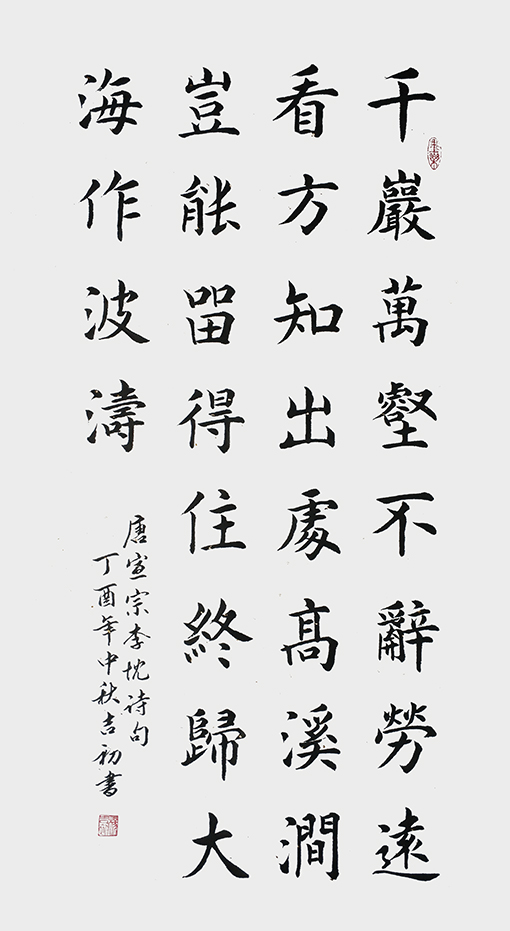 千巖萬壑不辭勞遠
看方知出處髙溪澗
豈能留得住終歸大
海作波濤
唐宣宗李忱诗句
丁酉年中秋吉初書